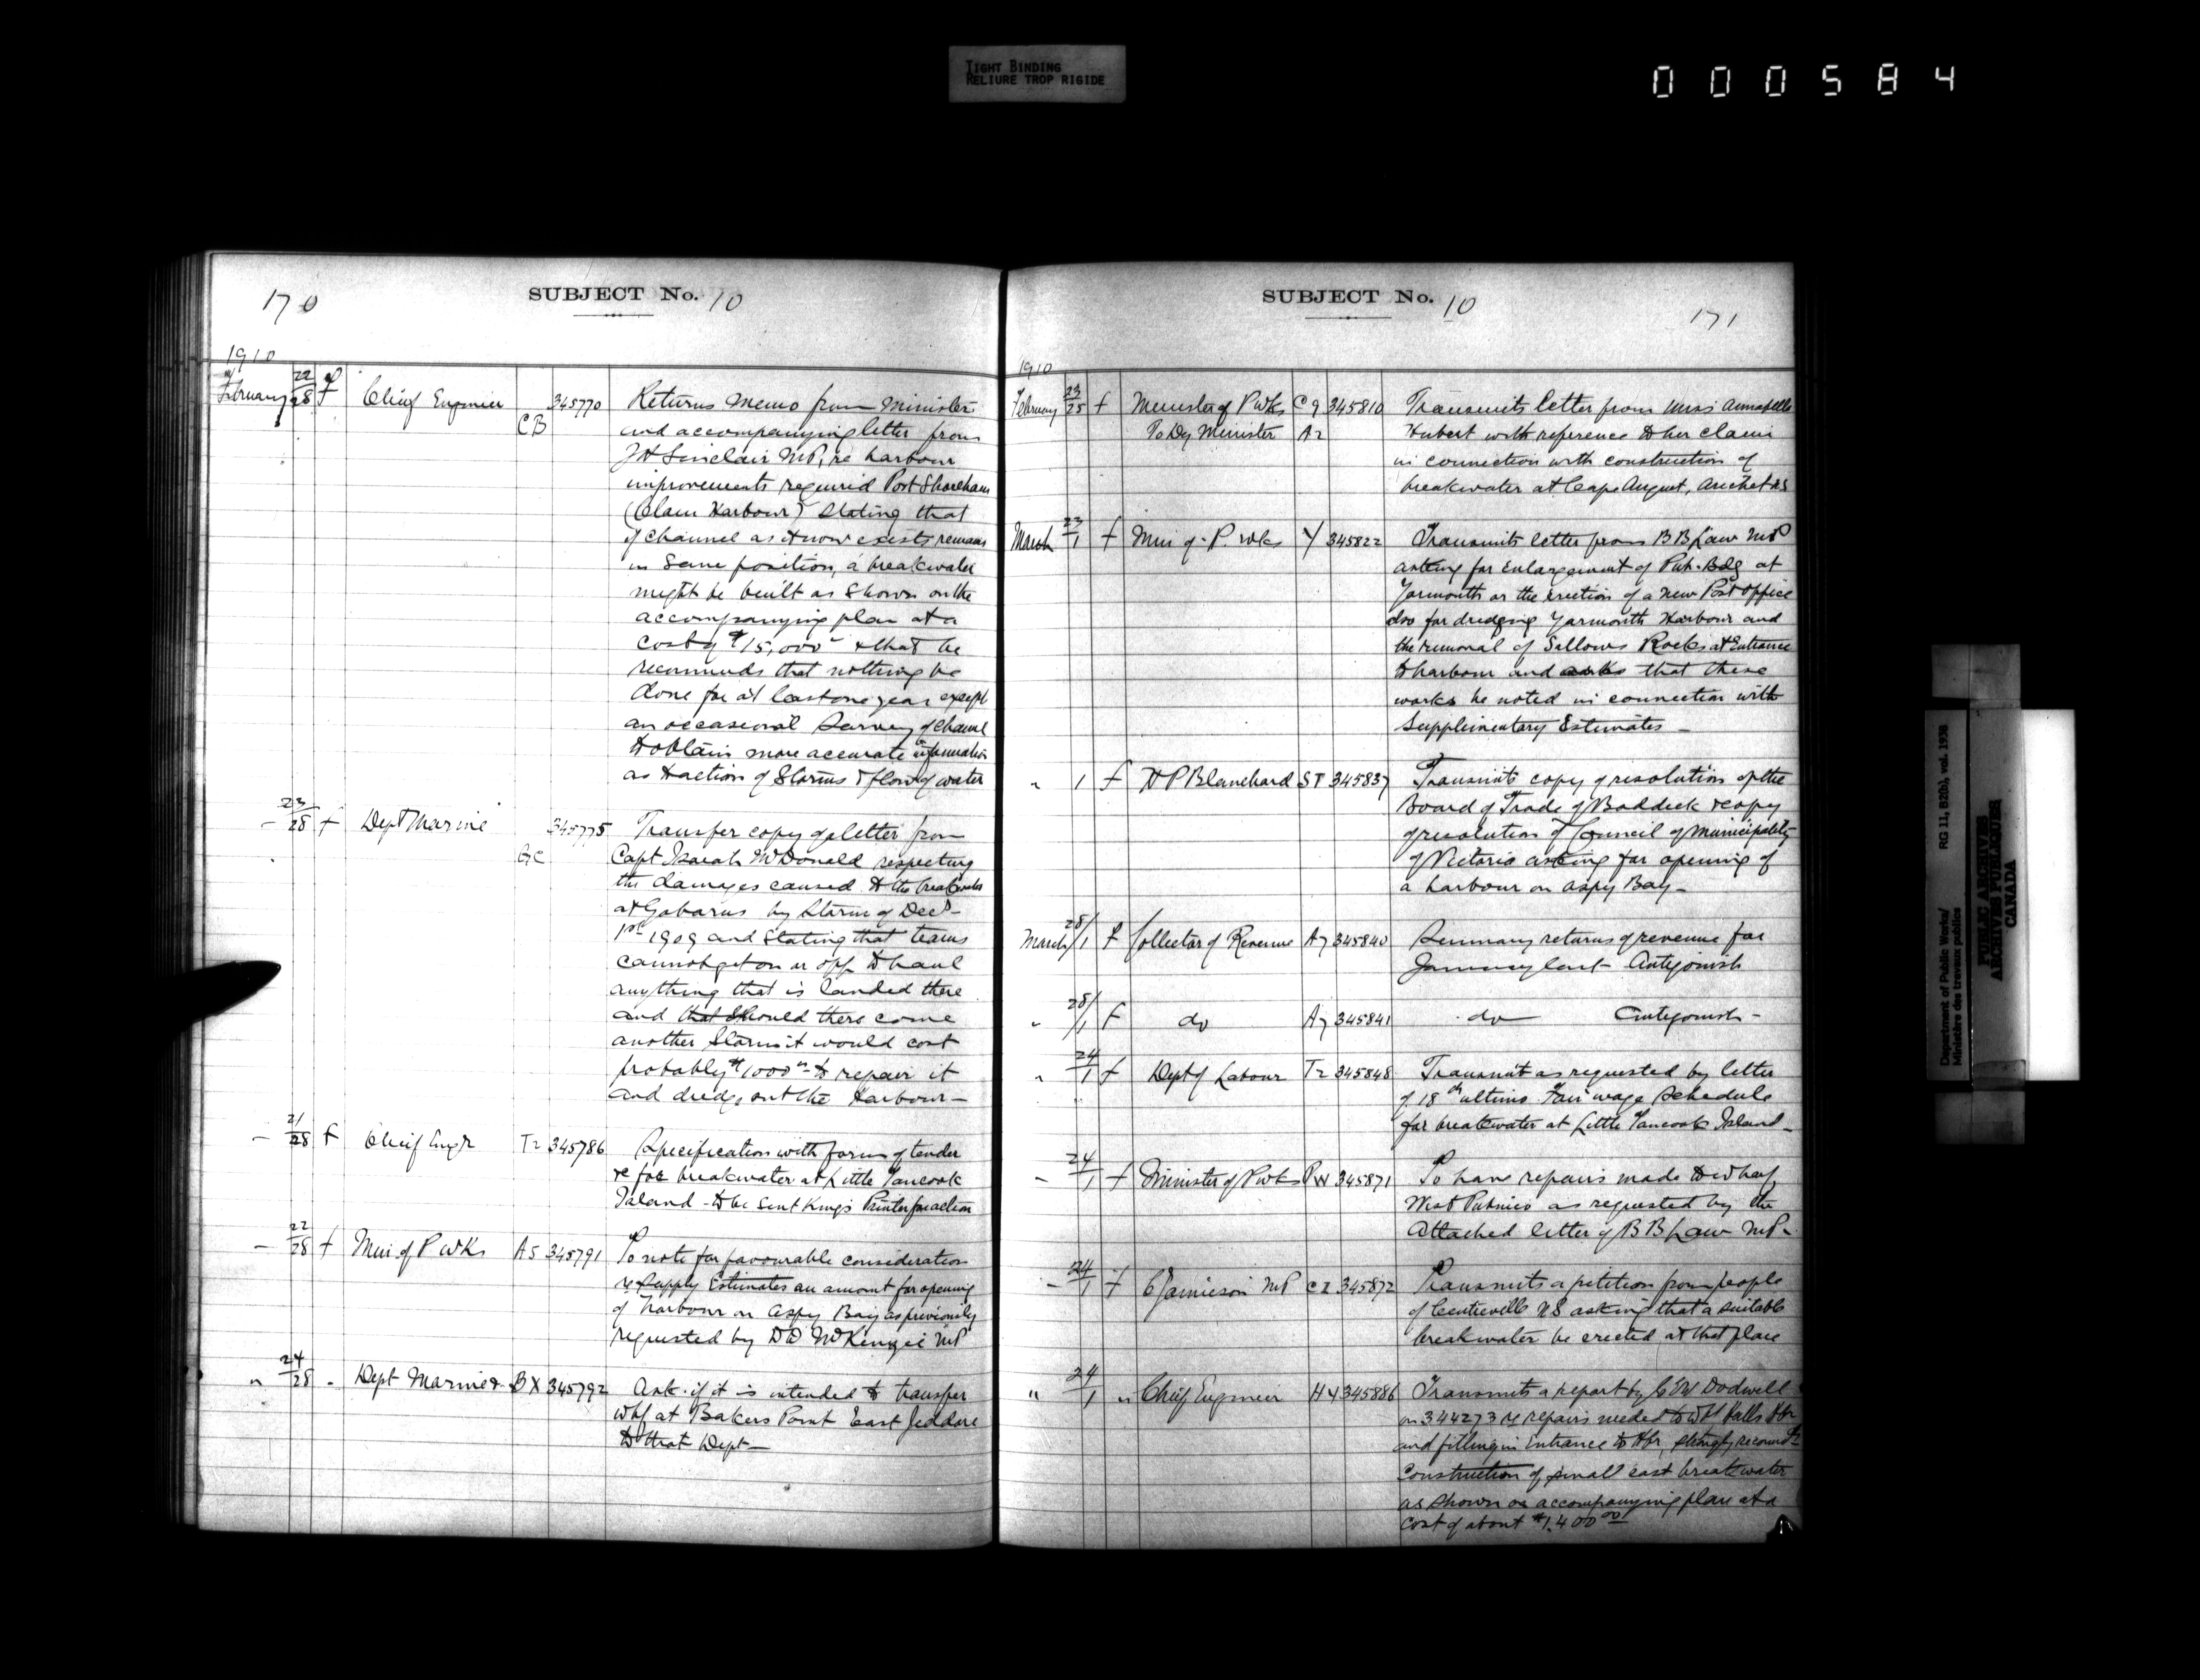 TIGHT BINDING
RELIURE TROP RIGIDE
000584
170
SUBJECT No. 10
1910
February 22/28 f Chief Engineer CB 345770 Returns memo from Minister
and accompanying letter from
J H Sinclair MP, re harbour
improvements required Port Shoreham
(Clam Harbour) Stating that
if channel as it now exists remains
in same position, a breakwater
might be built as shown on the
accompanying plan at a
cost of $15,000 & that he
recommends that nothing be
done for at least one year except
an occasional survey of channel
to obtain more accurate information
as to action of Storms & flow of water
– 23/28 f Dept Marine GC 345775 Transfer copy of letter from
Capt Isaiah McDonald respecting
the damages caused to the breakwater
at Gabarus by storm of Decr
1st 1909 and stating that teams
cannot get on or off to haul
anything that is landed there
and that should there come
another Storm it would cost
probably $1000 to repair it
and dredge out the Harbour –
– 21/28 f Chief Engr T2 345786 Specification with form of tender
re for breakwater at Little Tancook
Island – to be sent Kings Printer for action
– 22/28 f Min of P Wks AS 345791 To note for favourable consideration
re Supply Estimates an amount for opening
of harbour on Aspy Bay as previously
requested by D D McKenzie MP
" 24/28 " Dept Marine & BX 345792 Ask if it is intended to transfer
whf at Bakers Point East Jeddore
to that Dept –
SUBJECT No. 10
171
1910
February 23/25 f Minister of P Wks C9 345810 Transmits letter from Miss Annabelle
To Dy Minister A2 Hubert with reference to her claim
in connection with construction of
breakwater at Cape August, Arichat NS
March 23/1 f Min of P. Wks Y 345822 Transmits letter from B B Law MP
asking for enlargement of Pub. Bdg at
Yarmouth or the erection of a new Post Office
also for dredging Yarmouth Harbour and
the removal of Sallows Rocks at Entrance
to harbour and asks that these
works be noted in connection with
Supplimentary Estimates –
" 1 f H P Blanchard ST 345837 Transmits copy of resolution of the
Board of Trade of Baddeck & copy
of resolution of Council of Municipality
of Victoria asking for opening of
a harbour on Aspy Bay –
March 28/1 f Collector of Revenue A7 345840 Summary returns of revenue for
January last Antigonish
" 28/1 f do A7 345841 do Antigonish –
" 24/1 f Dept of Labour T2 345848 Transmit as requested by letter
of 18th ultimo Fair wage schedule
for breakwater at Little Tancook Island –
– 24/1 f Minister of P Wks PW 345871 To have repairs made to wharf
West Pubnico as requested by the
Attached letter of B B Law MP.
– 24/1 f C Jamieson MP CI 345872 Transmits a petition from people
of Centreville NS asking that a suitable
breakwater be erected at that place
" 24/1 " Chief Engineer HY 345886 Transmits a report by C E W Dodwell
on 344273 re repairs needed to Whf Halls Hbr
and filling in Entrance to Hbr, strongly recomds
construction of small east breakwater
as shown on accompanying plan at a
cost of about $1,400.00
RG 11, B2(b), vol. 1938
Department of Public Works/
Ministère des travaux publics
PUBLIC ARCHIVES
ARCHIVES PUBLIQUES
CANADA